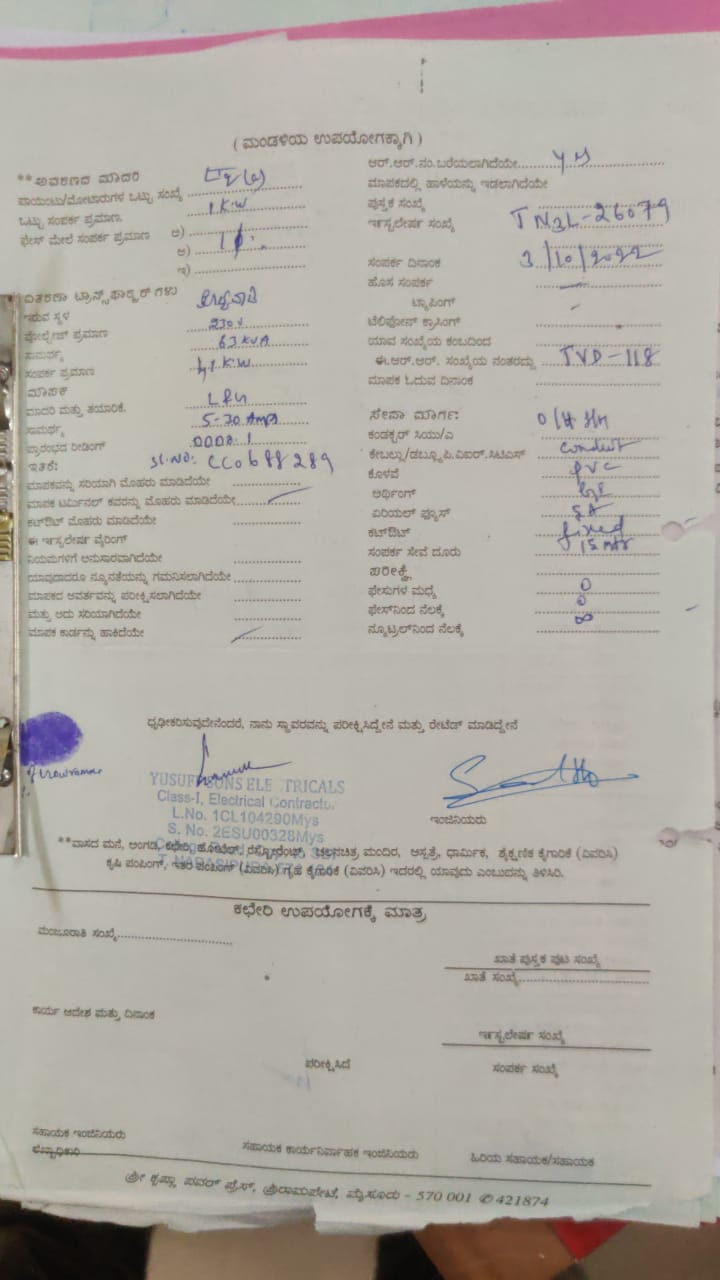 ( ಮಂಡಳಿಯ ಉಪಯೋಗಕ್ಕಾಗಿ )
**ಆವರಣದ ಮಾದರಿ
ಪಾಯಿಂಟು/ಮೋಟಾರುಗಳ ಒಟ್ಟು ಸಂಖ್ಯೆ
ಒಟ್ಟು ಸಂಪರ್ಕ ಪ್ರಮಾಣ 1 KW
ಫೇಸ್ ಮೇಲೆ ಸಂಪರ್ಕ ಪ್ರಮಾಣ ಅ)
ಆ)
ಇ)
ವಿತರಣಾ ಟ್ರಾನ್ಸ್‌ಫಾರ್ಮರ್ ಗಳು
ಇರುವ ಸ್ಥಳ
ವೋಲ್ಟೇಜ್ ಪ್ರಮಾಣ 230V
ಸಾಮರ್ಥ್ಯ 63 KVA
ಸಂಪರ್ಕ ಪ್ರಮಾಣ
ಮಾಪಕ
ಮಾದರಿ ಮತ್ತು ತಯಾರಿಕೆ.
ಸಾಮರ್ಥ್ಯ 5-30 Amps
ಪ್ರಾರಂಭದ ರೀಡಿಂಗ್ 0000.1
ಇತರೆ: Sl.No: CC0688289
ಮಾಪಕವನ್ನು ಸರಿಯಾಗಿ ಮೊಹರು ಮಾಡಿದೆಯೇ
ಮಾಪಕ ಟರ್ಮಿನಲ್ ಕವರನ್ನು ಮೊಹರು ಮಾಡಿದೆಯೇ
ಕಟ್‌ಔಟ್ ಮೊಹರು ಮಾಡಿದೆಯೇ
ಈ ಇನ್ಸ್ಟಲೇಷನ್ ವೈರಿಂಗ್
ನಿಯಮಗಳಿಗೆ ಅನುಸಾರವಾಗಿದೆಯೇ
ಯಾವುದಾದರೂ ನ್ಯೂನತೆಯನ್ನು ಗಮನಿಸಲಾಗಿದೆಯೇ
ಮಾಪಕದ ಆವರ್ತವನ್ನು ಪರೀಕ್ಷಿಸಲಾಗಿದೆಯೇ
ಮತ್ತು ಅದು ಸರಿಯಾಗಿದೆಯೇ
ಮಾಪಕ ಕಾರ್ಡನ್ನು ಹಾಕಿದೆಯೇ
ಆರ್.ಆರ್.ನಂ.ಬರೆಯಲಾಗಿದೆಯೇ
ಮಾಪಕದಲ್ಲಿ ಹಾಳೆಯನ್ನು ಇಡಲಾಗಿದೆಯೇ
ಪುಸ್ತಕ ಸಂಖ್ಯೆ
ಇನ್ಸ್ಟಲೇಷನ್ ಸಂಖ್ಯೆ TN3L-26079
ಸಂಪರ್ಕ ದಿನಾಂಕ 3/10/2022
ಹೊಸ ಸಂಪರ್ಕ
ಟ್ಯಾಪಿಂಗ್
ಟೆಲಿಫೋನ್ ಕ್ರಾಸಿಂಗ್
ಯಾವ ಸಂಖ್ಯೆಯ ಕಂಬದಿಂದ
ಈ.ಆರ್.ಆರ್. ಸಂಖ್ಯೆಯ ನಂತರದ್ದು TVD-118
ಮಾಪಕ ಓದುವ ದಿನಾಂಕ
ಸೇವಾ ಮಾರ್ಗ:
ಕಂಡಕ್ಟರ್ ಸಿಯು/ಎ
ಕೇಬಲ್ಲು/ಡಬ್ಲ್ಯೂ.ಪಿ.ಐಆರ್.ಸಿಟಿಎಸ್ conduit
ಕೊಳವೆ PVC
ಅರ್ಥಿಂಗ್
ಏರಿಯಲ್ ಫ್ಯೂಸ್ 5A
ಕಟ್‌ಔಟ್ fixed
ಸಂಪರ್ಕ ಸೇವೆ ದೂರು 15 mtr
ಪರೀಕ್ಷೆ
ಫೇಸುಗಳ ಮಧ್ಯೆ 0
ಫೇಸ್‌ನಿಂದ ನೆಲಕ್ಕೆ 0
ನ್ಯೂಟ್ರಲ್‌ನಿಂದ ನೆಲಕ್ಕೆ ∞
ಧೃಢೀಕರಿಸುವುದೇನೆಂದರೆ, ನಾನು ಸ್ಥಾವರವನ್ನು ಪರೀಕ್ಷಿಸಿದ್ದೇನೆ ಮತ್ತು ರೇಟೆಡ್ ಮಾಡಿದ್ದೇನೆ
YUSUF SONS ELECTRICALS
Class-I, Electrical Contractor
L.No. 1CL104290Mys
S. No. 2ESU00328Mys
ಇಂಜಿನಿಯರು
**ವಾಸದ ಮನೆ, ಅಂಗಡಿ, ಕಛೇರಿ, ಹೋಟೆಲ್, ರೆಸ್ಟೋರೆಂಟ್, ಚಲನಚಿತ್ರ ಮಂದಿರ, ಆಸ್ಪತ್ರೆ, ಧಾರ್ಮಿಕ, ಶೈಕ್ಷಣಿಕ ಕೈಗಾರಿಕೆ (ವಿವರಿಸಿ)
ಕೃಷಿ ಪಂಪಿಂಗ್, ಇತರೆ ಪಂಪಿಂಗ್ (ವಿವರಿಸಿ) ಗೃಹ ಕೈಗಾರಿಕೆ (ವಿವರಿಸಿ) ಇದರಲ್ಲಿ ಯಾವುದು ಎಂಬುದನ್ನು ತಿಳಿಸಿರಿ.
ಕಛೇರಿ ಉಪಯೋಗಕ್ಕೆ ಮಾತ್ರ
ಮಂಜೂರಾತಿ ಸಂಖ್ಯೆ
ಖಾತೆ ಪುಸ್ತಕ ಪುಟ ಸಂಖ್ಯೆ
ಖಾತೆ ಸಂಖ್ಯೆ
ಕಾರ್ಯ ಆದೇಶ ಮತ್ತು ದಿನಾಂಕ
ಇನ್ಸ್ಟಲೇಷನ್ ಸಂಖ್ಯೆ
ಪರೀಕ್ಷಿಸಿದೆ
ಸಂಪರ್ಕ ಸಂಖ್ಯೆ
ಸಹಾಯಕ ಇಂಜಿನಿಯರು
ಸಹಾಯಕ ಕಾರ್ಯನಿರ್ವಾಹಕ ಇಂಜಿನಿಯರು
ಹಿರಿಯ ಸಹಾಯಕ/ಸಹಾಯಕ
ಶ್ರೀ ಕೃಷ್ಣಾ ಪವರ್ ಪ್ರೆಸ್, ಶ್ರೀರಾಮಪೇಟೆ, ಮೈಸೂರು - 570 001 ✆ 421874